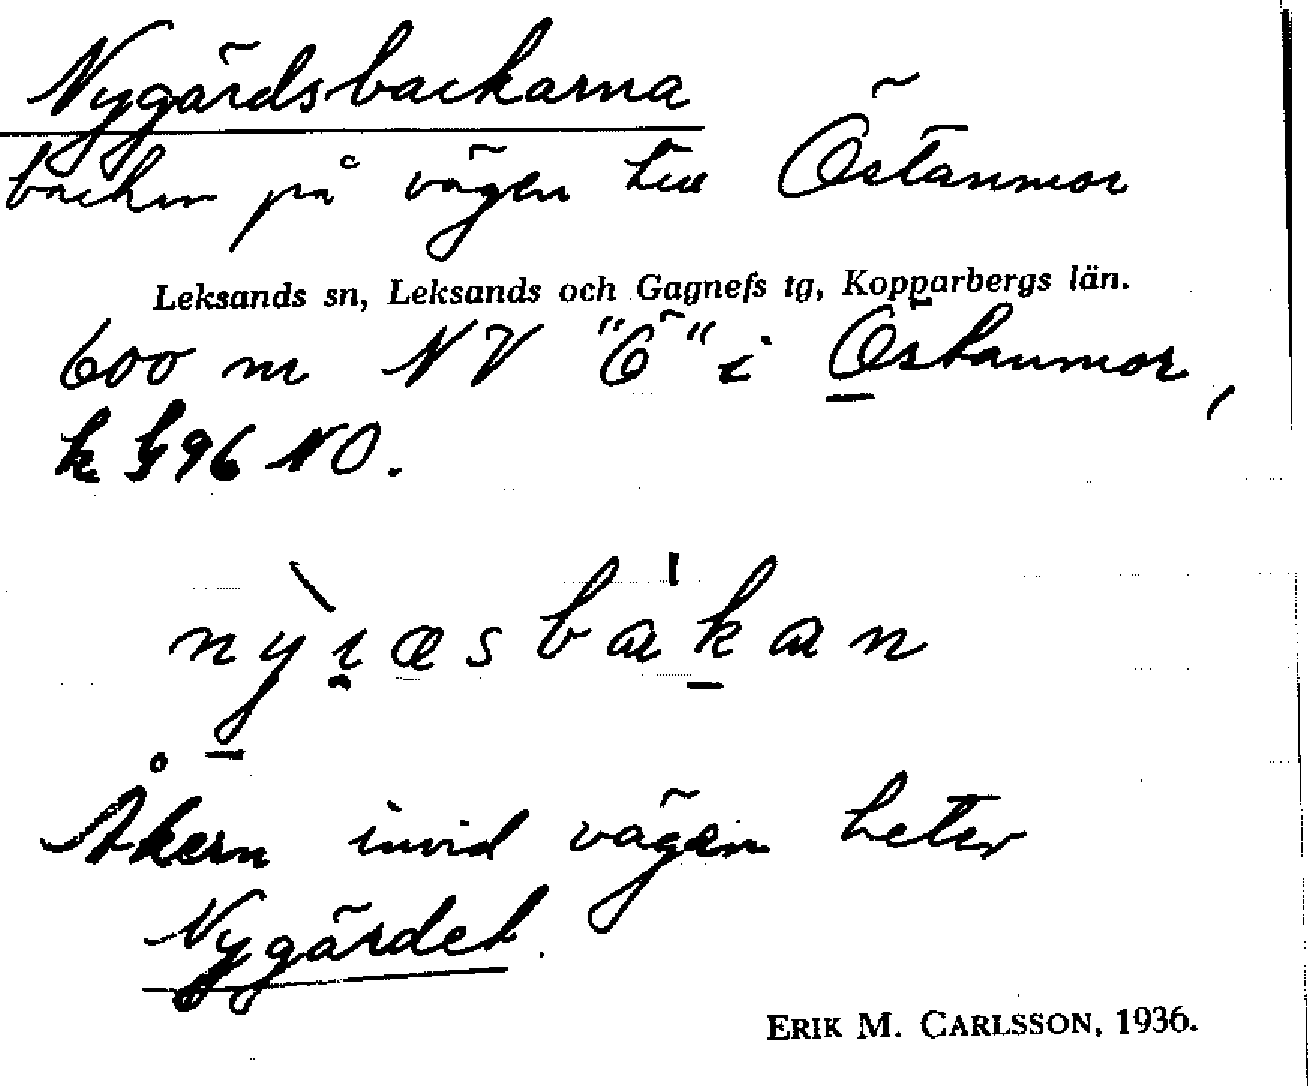 Nygärdsbackarna
backar på vägen till Östanmor
Leksands sn, Leksands och Gagnefs tg, Kopparbergs län.
600 m NV "Ö" i Östanmor,
k 96 NO.
nyiæsbakan
Åkern invid vägen heter
Nygärdet.
ERIK M. CARLSSON, 1936.